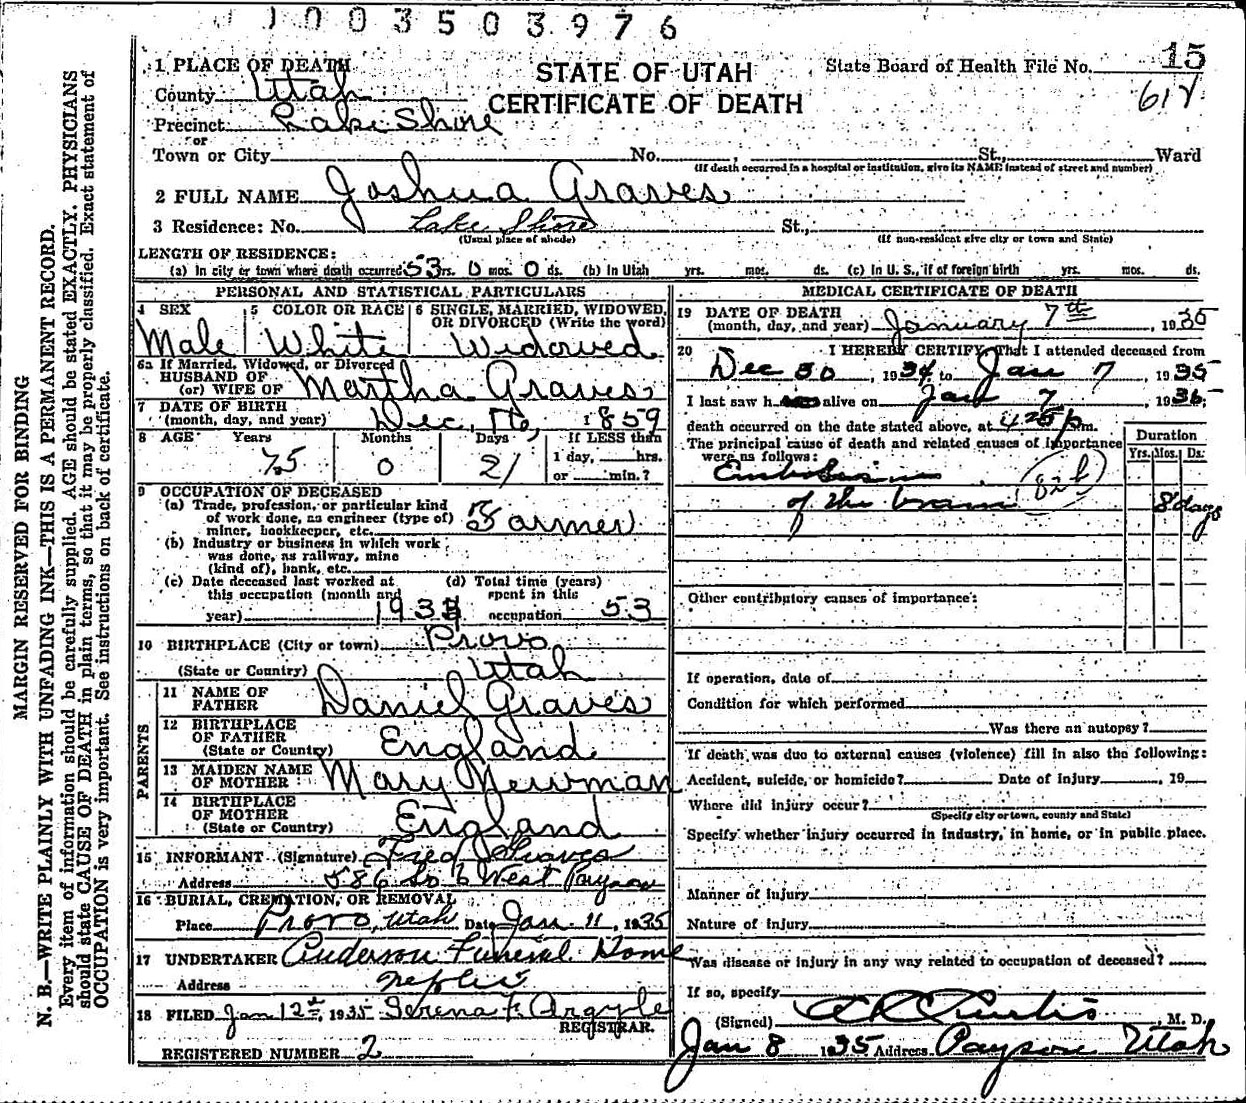 1003503976
15
1 PLACE OF DEATH
STATE OF UTAH
State Board of Health File No.
County Utah
CERTIFICATE OF DEATH
Precinct Lake Shore
or
Town or City No. , St., Ward
(If death occurred in a hospital or institution, give its NAME instead of street and number)
2 FULL NAME Joshua Graves
3 Residence: No. Lake Shore St.,
(Usual place of abode) (If non-resident give city or town and State)
LENGTH OF RESIDENCE:
(a) In city or town where death occurred 53 yrs. 0 mos. 0 ds. (b) In Utah yrs. mos. ds. (c) In U. S., if of foreign birth yrs. mos. ds.
PERSONAL AND STATISTICAL PARTICULARS
4 SEX 5 COLOR OR RACE 6 SINGLE, MARRIED, WIDOWED, OR DIVORCED (Write the word)
Male White Widowed
6a If Married, Widowed, or Divorced
HUSBAND OF
(or) WIFE OF Martha Graves
7 DATE OF BIRTH
(month, day, and year) Dec. 16, 1859
8 AGE Years Months Days If LESS than
1 day, hrs.
75 0 21 or min.?
9 OCCUPATION OF DECEASED
(a) Trade, profession, or particular kind
of work done, as engineer (type of)
miner, bookkeeper, etc. Farmer
(b) Industry or business in which work
was done, as railway, mine
(kind of), bank, etc.
(c) Date deceased last worked at
this occupation (month and
year) (d) Total time (years)
spent in this
occupation 53
10 BIRTHPLACE (City or town) Provo
(State or Country) Utah
PARENTS
11 NAME OF
FATHER Daniel Graves
12 BIRTHPLACE
OF FATHER
(State or Country) England
13 MAIDEN NAME
OF MOTHER Mary Newman
14 BIRTHPLACE
OF MOTHER
(State or Country) England
15 INFORMANT (Signature) Fred Graves
Address 586 So 6 West Payson
16 BURIAL, CREMATION, OR REMOVAL
Place Provo, Utah Date Jan 11, 1935
17 UNDERTAKER Anderson Funeral Home
Address Nephi
18 FILED Jan 12th, 1935 Serena F. Argyle
REGISTRAR.
REGISTERED NUMBER 2
MEDICAL CERTIFICATE OF DEATH
19 DATE OF DEATH
(month, day, and year) January 7th, 1935
20 I HEREBY CERTIFY, That I attended deceased from
Dec 30, 1934 to Jan 7, 1935
I last saw h alive on Jan 7, 1935;
death occurred on the date stated above, at 425 p m.
The principal cause of death and related causes of importance
were as follows:
Duration
Yrs. Mos. Ds.
Embolism
of the brain 82b 8 days
Other contributory causes of importance:
If operation, date of
Condition for which performed
Was there an autopsy?
If death was due to external causes (violence) fill in also the following:
Accident, suicide, or homicide? Date of injury , 19
Where did injury occur?
(Specify city or town, county and State)
Specify whether injury occurred in industry, in home, or in public place.
Manner of injury
Nature of injury
Was disease or injury in any way related to occupation of deceased?
If so, specify
(Signed) Curtis, M. D.
Jan 8 1935 Address Payson Utah
MARGIN RESERVED FOR BINDING
N. B.—WRITE PLAINLY WITH UNFADING INK—THIS IS A PERMANENT RECORD.
Every item of information should be carefully supplied. AGE should be stated EXACTLY. PHYSICIANS
should state CAUSE OF DEATH in plain terms, so that it may be properly classified. Exact statement of
OCCUPATION is very important. See instructions on back of certificate.